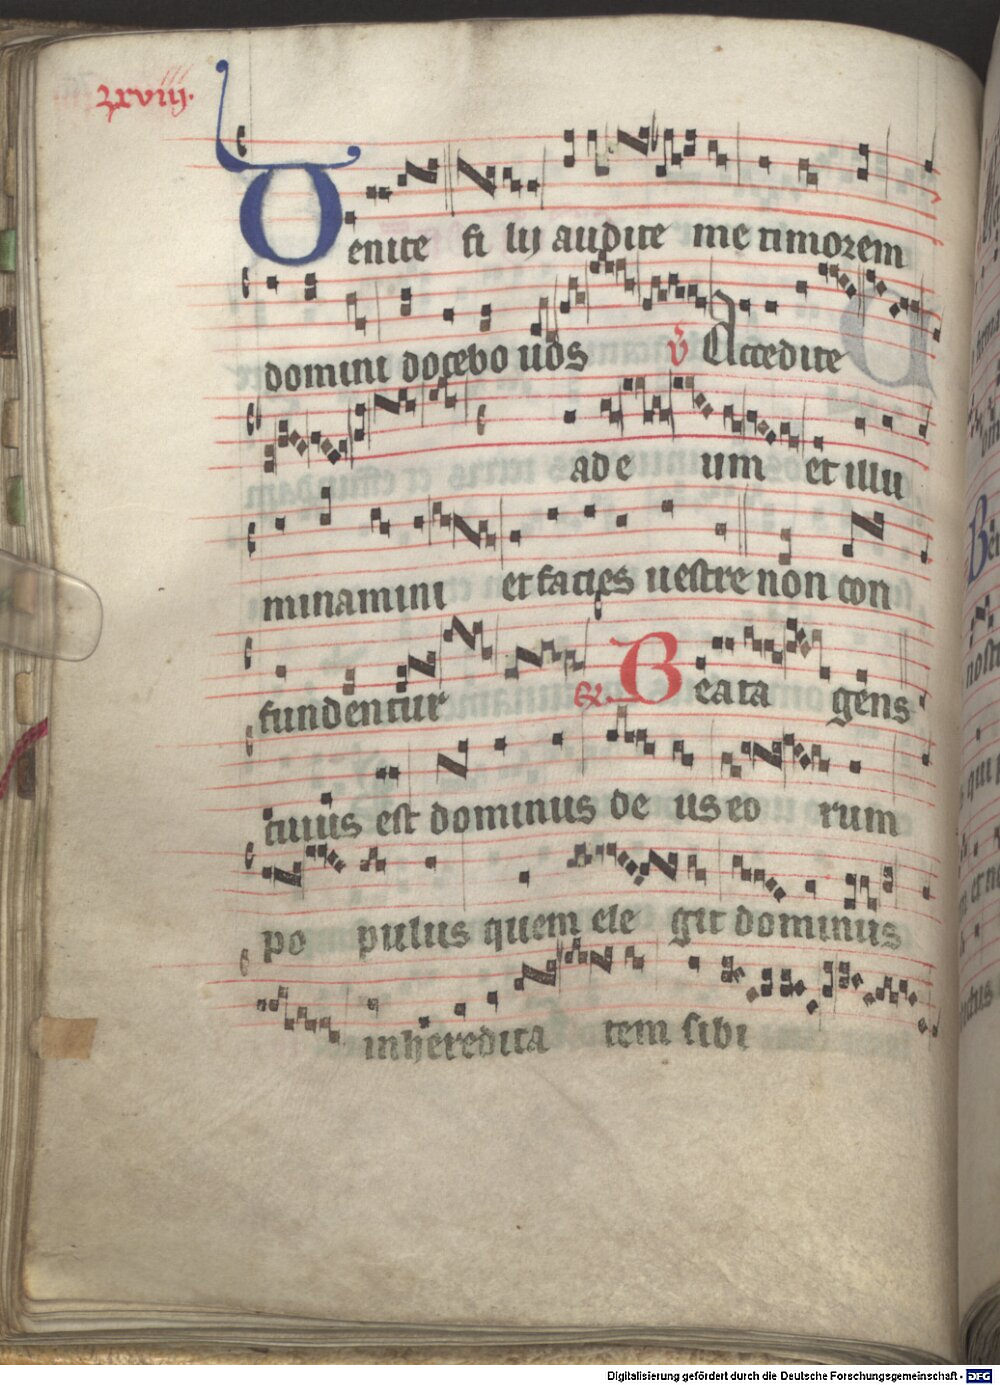 lxxviii.
Venite fi lij audite me timorem
domini docebo uos ℣ Accedite
ad e um et illu
minamini et facies uestre non con
fundentur Beata gens
cuius est dominus de us eo rum
po pulus quem ele git dominus
in heredita tem sibi
Digitalisierung gefördert durch die Deutsche Forschungsgemeinschaft - DFG